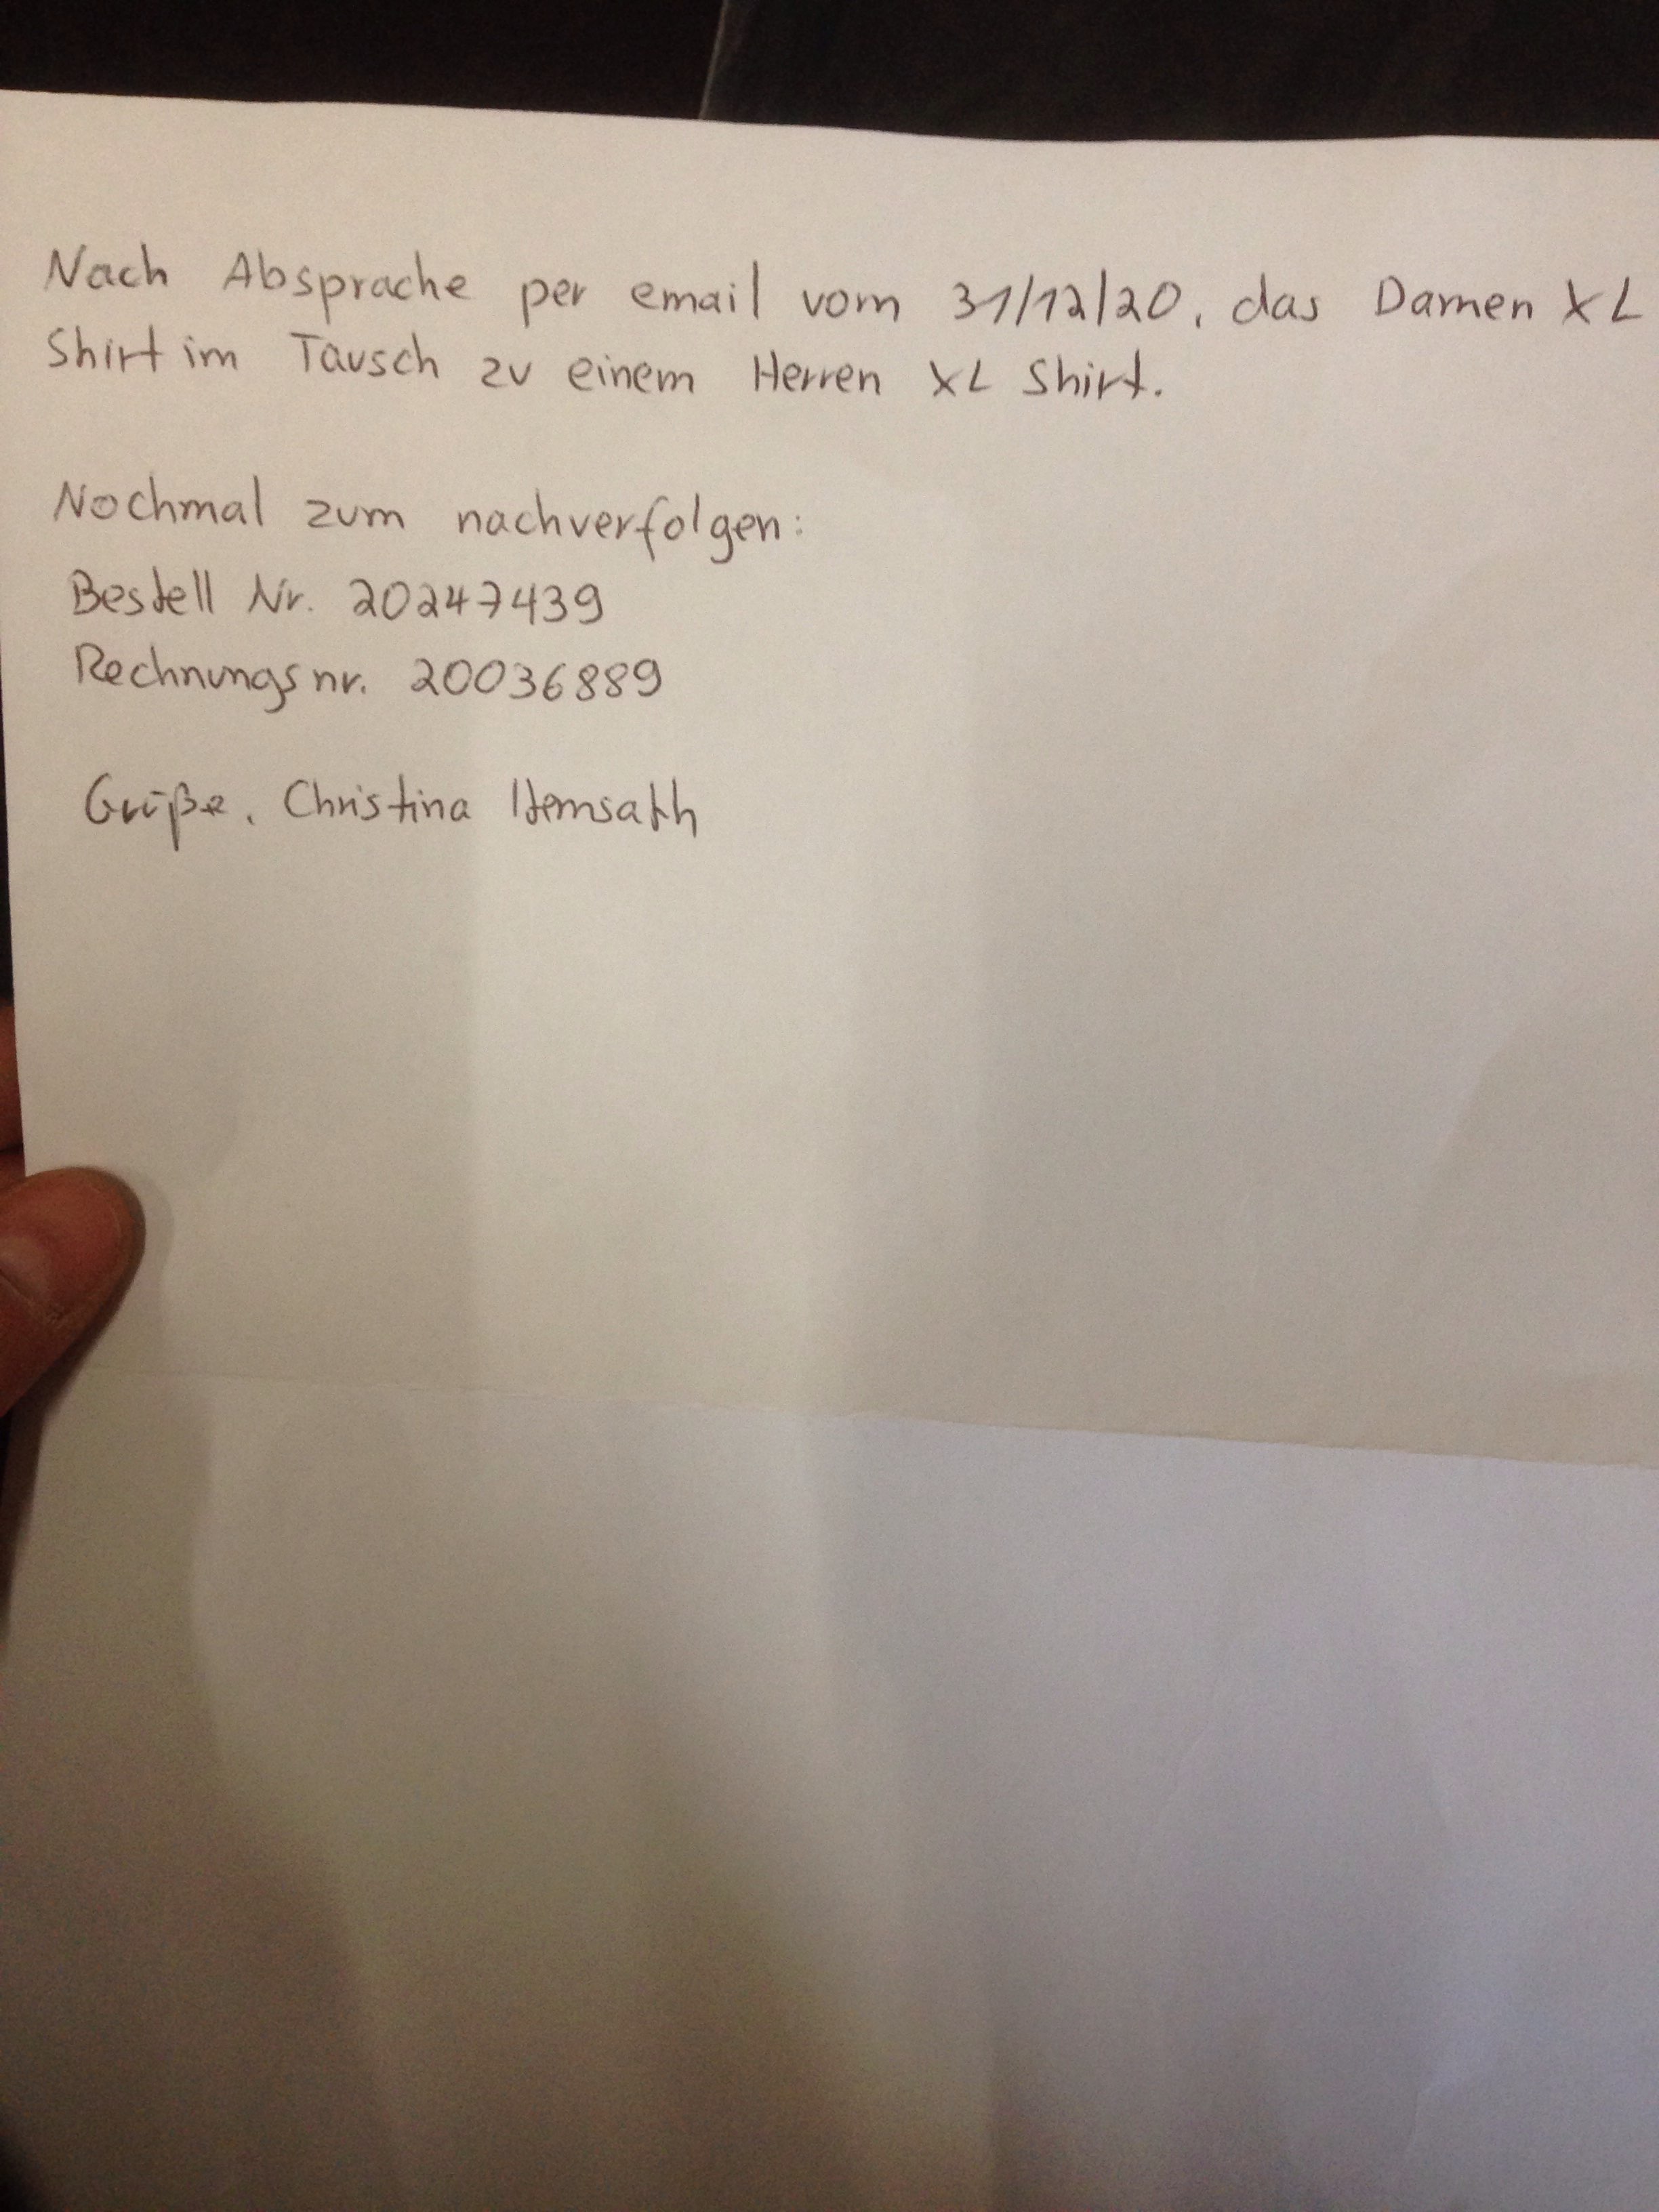 Nach Absprache per email vom 31/12/20, das Damen XL
Shirt im Tausch zu einem Herren XL Shirt.
Nochmal zum nachverfolgen:
Bestell Nr. 20247439
Rechnungsnr. 20036889
Grüße, Christina Hemsath